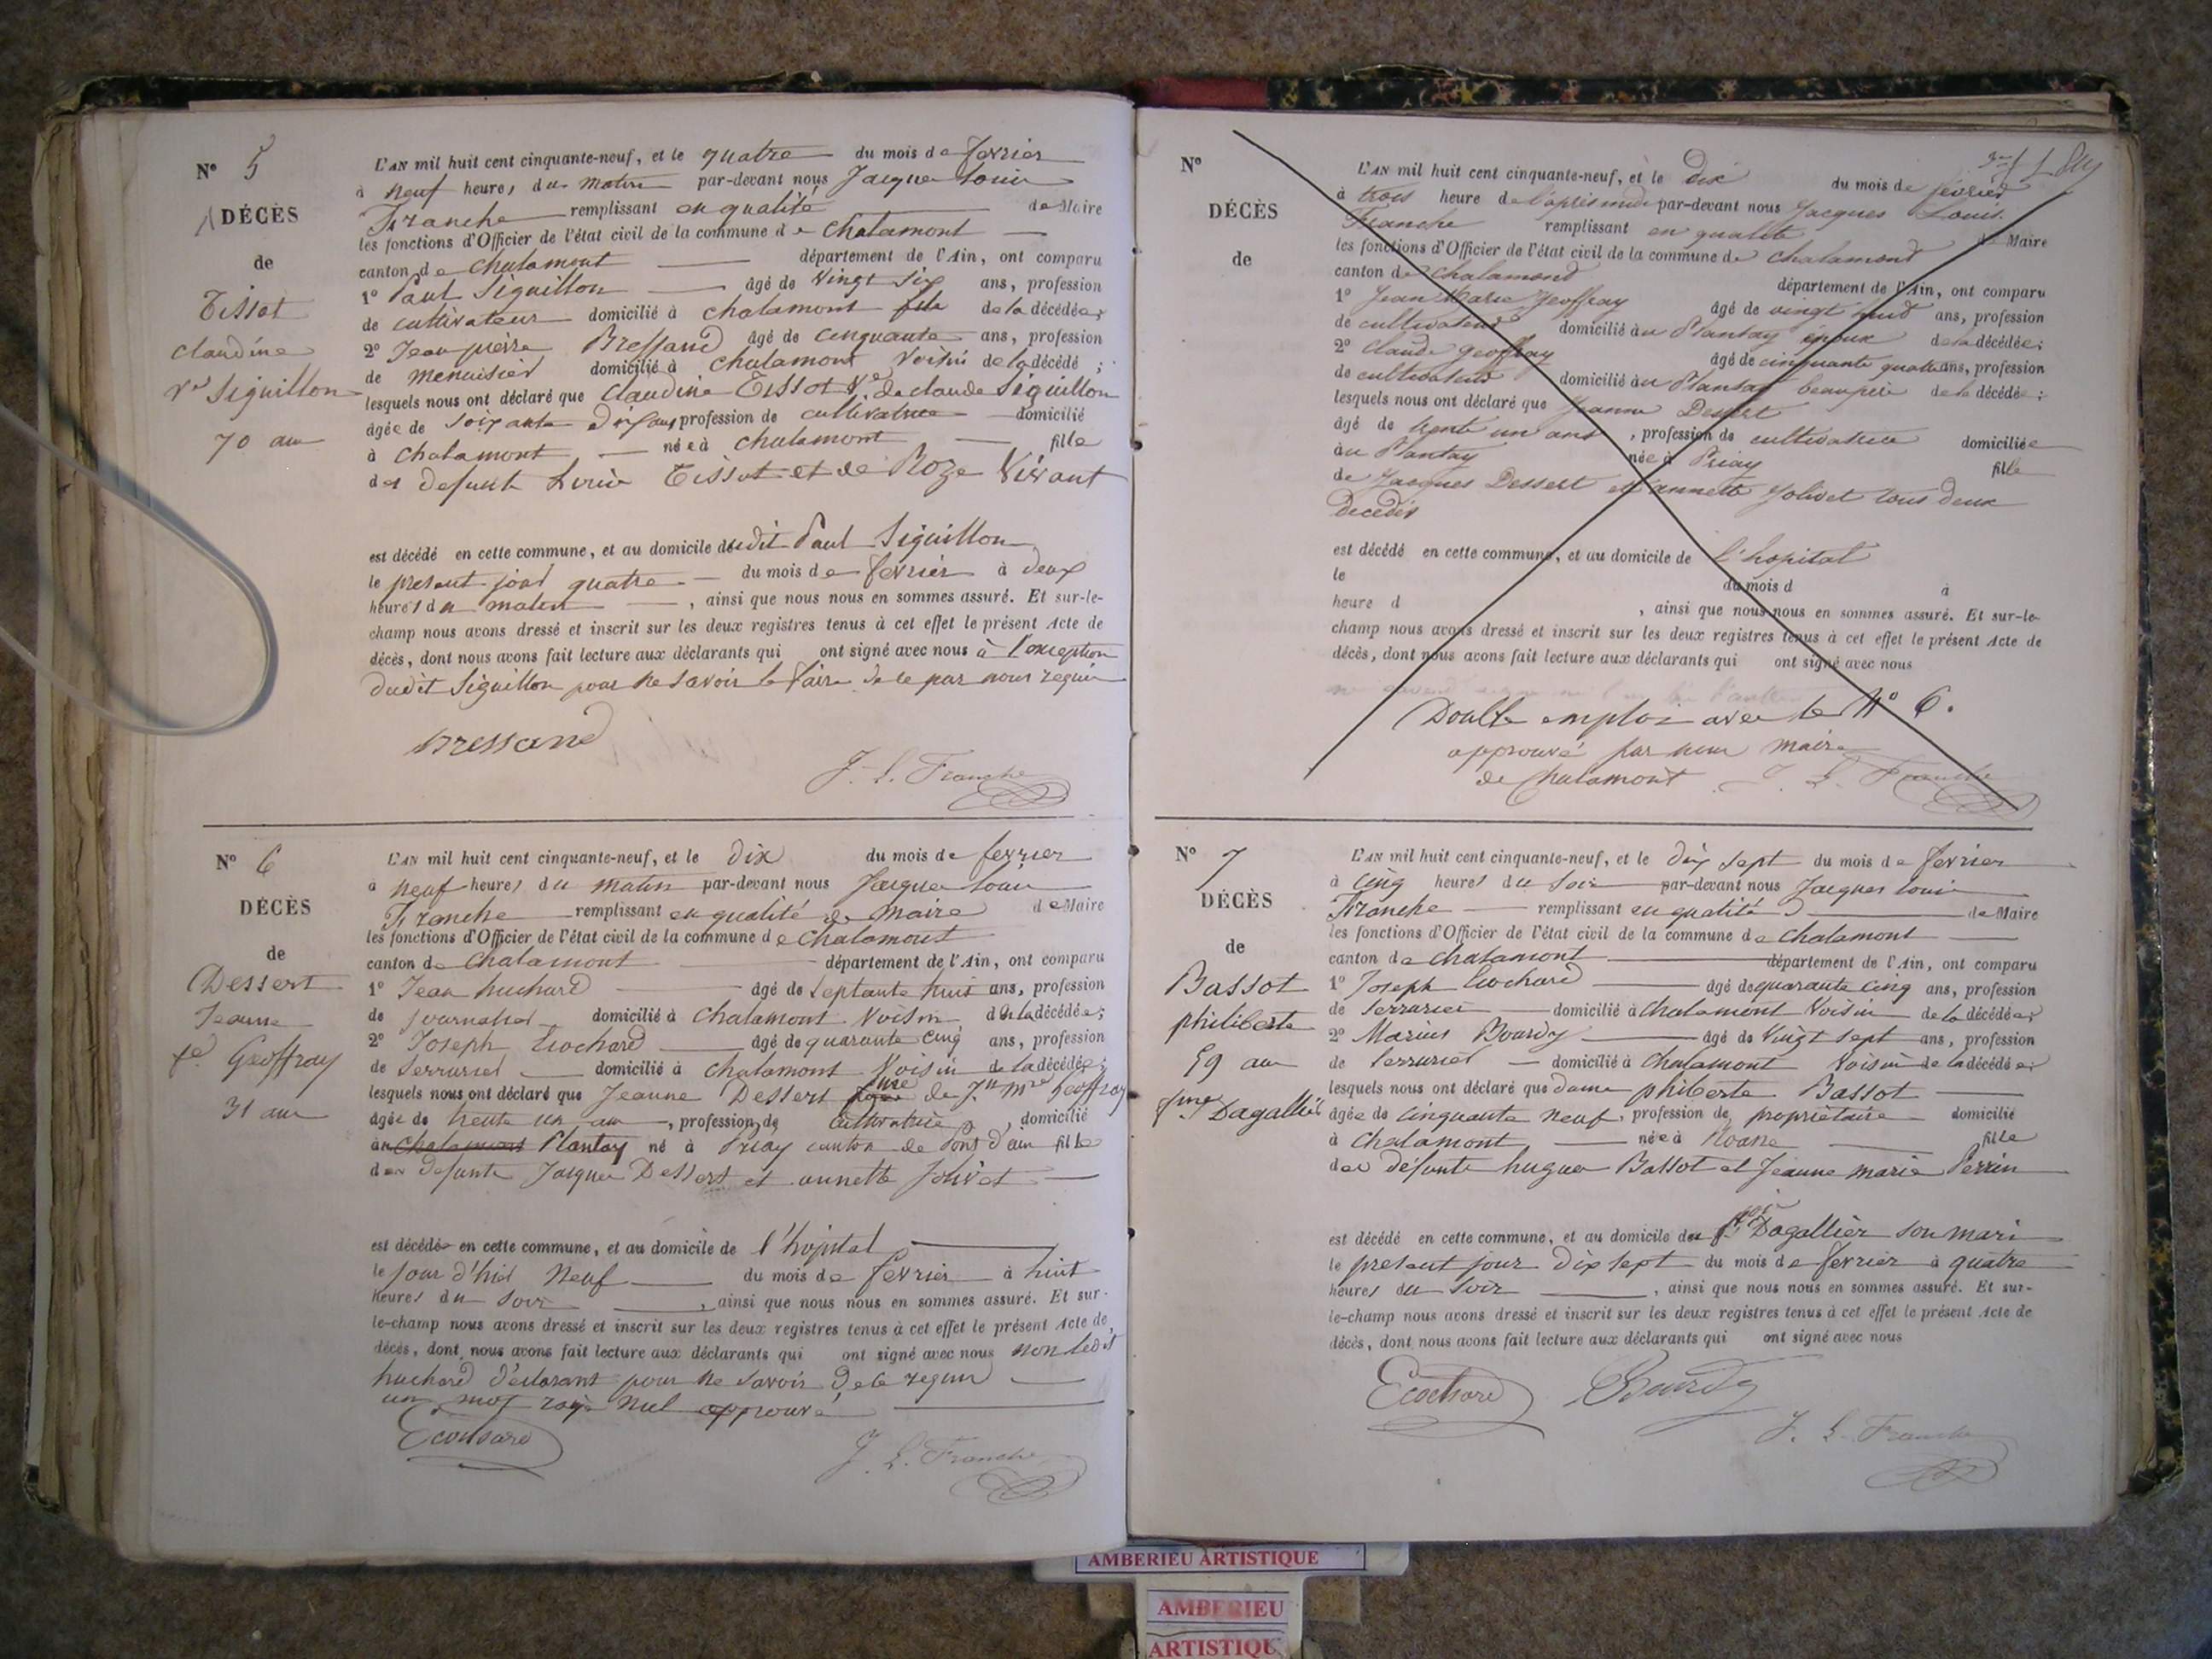 N° 5
DÉCÈS
de
Tissot
claudine
Ve Siguillon
70 ans
L'AN mil huit cent cinquante-neuf, et le quatre du mois de fevrier
à neuf heures du matin par-devant nous Jacques Louis
Franche remplissant en qualité de Maire
les fonctions d'Officier de l'état civil de la commune de Chalamont
canton de Chalamont département de l'Ain, ont comparu
1° Paul Siguillon âgé de vingt six ans, profession
de cultivateur domicilié à chalamont fils de la décédée,
2° Jean pierre Bressand âgé de cinquante ans, profession
de menuisier domicilié à chalamont voisin de la décédé ;
lesquels nous ont déclaré que Claudine Tissot Ve de claude Siguillon
âgée de soixante dix ans profession de cultivatrice domicilié
à chalamont née à chalamont fille
des defunts Louis Tissot et de Roze Vivant
est décédé en cette commune, et au domicile dudit Paul Siguillon
le present jour quatre du mois de fevrier à deux
heures du matin , ainsi que nous nous en sommes assuré. Et sur-le-
champ nous avons dressé et inscrit sur les deux registres tenus à cet effet le présent Acte de
décès, dont nous avons fait lecture aux déclarants qui ont signé avec nous à l'exception
dudit Siguillon pour ne savoir le faire de ce par nous requis
Bressand
J. L. Franche
N° 6
DÉCÈS
de
Dessert
Jeanne
fe Geoffray
31 ans
L'AN mil huit cent cinquante-neuf, et le dix du mois de fevrier
à neuf heures du matin par-devant nous Jacques Louis
Franche remplissant en qualité de Maire de Maire
les fonctions d'Officier de l'état civil de la commune de Chalamont
canton de Chalamont département de l'Ain, ont comparu
1° Jean huchard âgé de septante huit ans, profession
de journalier domicilié à Chalamont Voisin de la décédée;
2° Joseph Cochard âgé de quarante cinq ans, profession
de Serrurier domicilié à Chalamont Voisin de la décédée;
lesquels nous ont déclaré que Jeanne Dessert de Jn Mie Geoffray
âgée de trente un ans , profession de cultivatrice , domicilié
au Chalamont Plantay né à Priay canton de Pont d'ain fille
des defunts Jacques Dessert et annette Jolivet
est décédée en cette commune, et au domicile de l'hopital
le jour d'hier neuf du mois de fevrier à huit
heures du soir , ainsi que nous nous en sommes assuré. Et sur-
le-champ nous avons dressé et inscrit sur les deux registres tenus à cet effet le présent Acte de
décès, dont nous avons fait lecture aux déclarants qui ont signé avec nous non ledit
huchard déclarant pour ne savoir de ce requis
un mot rayé nul approuvé
J. L. Franche
N°
DÉCÈS
de
L'AN mil huit cent cinquante-neuf, et le dix du mois de février
à trois heure de l'après midi par-devant nous Jacques Louis
Franche remplissant en qualité de Maire
les fonctions d'Officier de l'état civil de la commune de Chalamond
canton de Chalamond département de l'Ain, ont comparu
1° Jean Marie Geoffray âgé de vingt huit ans, profession
de cultivateur domicilié au Plantay époux de la décédée;
2° Claude geoffray âgé de cinquante quatre ans, profession
de cultivateur domicilié au Plantay beaupère de la décédée;
lesquels nous ont déclaré que Jeanne Dessert
âgé de trente un ans , profession de cultivatrice domiciliée
au Plantay née à Priay fille
de Jacques Dessert et annette Jolivet tous deux
décédés
est décédé en cette commune, et au domicile de l'hopital
le du mois d à
heure d , ainsi que nous nous en sommes assuré. Et sur-le-
champ nous avons dressé et inscrit sur les deux registres tenus à cet effet le présent Acte de
décès, dont nous avons fait lecture aux déclarants qui ont signé avec nous
Double emploi avec le N° 6.
approuvé par nous maire
de Chalamont J. L. Franche
N° 7
DÉCÈS
de
Bassot
philiberte
59 ans
fme Dagallier
L'AN mil huit cent cinquante-neuf, et le dix sept du mois de fevrier
à cinq heures du soir par-devant nous Jacques Louis
Franche remplissant en qualité de Maire
les fonctions d'Officier de l'état civil de la commune de Chalamont
canton de Chalamont département de l'Ain, ont comparu
1° Joseph Cochard âgé de quarante cinq ans, profession
de serrurier domicilié à Chalamont Voisin de la décédée,
2° Marius Bourdy âgé de Vingt sept ans, profession
de serrurier domicilié à Chalamont Voisin de la décédée;
lesquels nous ont déclaré que dame phiberte Bassot
âgée de cinquante neuf, profession de propriétaire domicilié
à Chalamont née à Roane fille
des défunts hugues Bassot et Jeanne marie Perrin
est décédé en cette commune, et au domicile du Dagallier son mari
le présent jour dix sept du mois de fevrier à quatre
heures du soir , ainsi que nous nous en sommes assuré. Et sur-
le-champ nous avons dressé et inscrit sur les deux registres tenus à cet effet le présent Acte de
décès, dont nous avons fait lecture aux déclarants qui ont signé avec nous
Bourdy
J. L. Franche
AMBERIEU ARTISTIQUE
AMBERIEU
ARTISTIQU